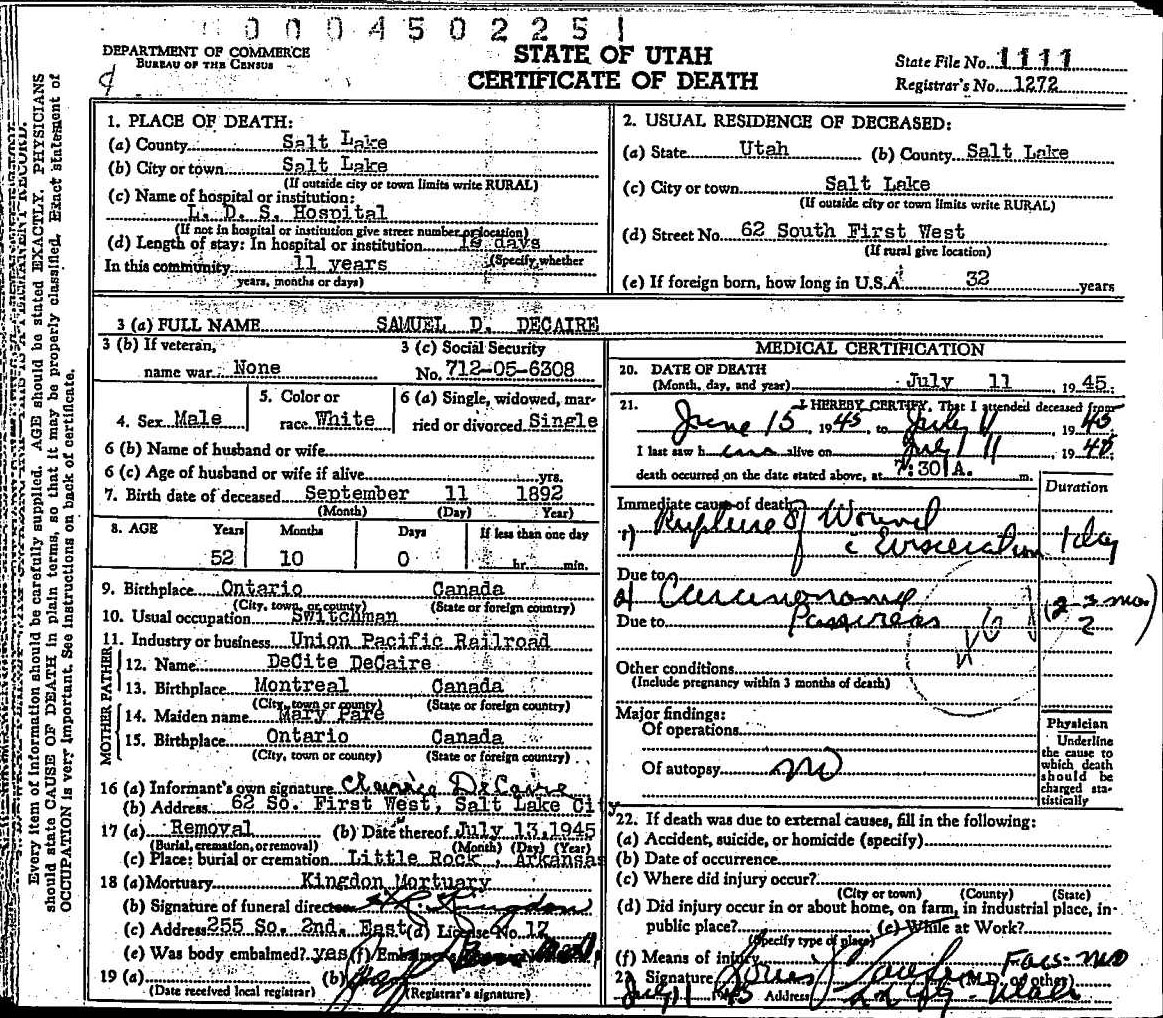 0004502251
DEPARTMENT OF COMMERCE
BUREAU OF THE CENSUS
STATE OF UTAH
CERTIFICATE OF DEATH
State File No. 1111
Registrar's No. 1272
Every item of information should be carefully supplied. AGE should be stated EXACTLY. PHYSICIANS
should state CAUSE OF DEATH in plain terms, so that it may be properly classified. Exact statement of
OCCUPATION is very important. See instructions on back of certificate.
1. PLACE OF DEATH:
(a) County Salt Lake
(b) City or town Salt Lake
(If outside city or town limits write RURAL)
(c) Name of hospital or institution:
L. D. S. Hospital
(If not in hospital or institution give street number or location)
(d) Length of stay: In hospital or institution days
(Specify whether
In this community 11 years
years, months or days)
2. USUAL RESIDENCE OF DECEASED:
(a) State Utah (b) County Salt Lake
(c) City or town Salt Lake
(If outside city or town limits write RURAL)
(d) Street No. 62 South First West
(If rural give location)
(e) If foreign born, how long in U.S.A. 32 years
3 (a) FULL NAME SAMUEL D. DECAIRE
3 (b) If veteran,
name war. None
3 (c) Social Security
No. 712-05-6308
4. Sex Male
5. Color or
race White
6 (a) Single, widowed, mar-
ried or divorced Single
6 (b) Name of husband or wife
6 (c) Age of husband or wife if alive yrs.
7. Birth date of deceased September 11 1892
(Month) (Day) (Year)
8. AGE Years Months Days If less than one day
52 10 0 hr. min.
9. Birthplace Ontario Canada
(City, town, or county) (State or foreign country)
10. Usual occupation Switchman
11. Industry or business Union Pacific Railroad
FATHER
12. Name DeCite DeCaire
13. Birthplace Montreal Canada
(City, town or county) (State or foreign country)
MOTHER
14. Maiden name Mary Pare
15. Birthplace Ontario Canada
(City, town or county) (State or foreign country)
16 (a) Informant's own signature DeCaire
(b) Address 62 So. First West, Salt Lake City
17 (a) Removal (b) Date thereof July 13, 1945
(Burial, cremation, or removal) (Month) (Day) (Year)
(c) Place: burial or cremation Little Rock, Arkansas
18 (a) Mortuary Kingdon Mortuary
(b) Signature of funeral director Kingdon
(c) Address 255 So. 2nd. East (d) License No. 12
(e) Was body embalmed? yes (f)
19 (a) (b)
(Date received local registrar) (Registrar's signature)
MEDICAL CERTIFICATION
20. DATE OF DEATH
(Month, day, and year) July 11, 1945.
21. I HEREBY CERTIFY, That I attended deceased from
June 15, 1945, to July 11, 1945
I last saw h alive on July 11 1945
death occurred on the date stated above, at 7:30 A. m.
Duration
Immediate cause of death
1) Rupture of Wound
c Evisceration 1 day
Due to
2) Carcinoma (2-3 mo.)
Due to Pancreas ?
Other conditions
(Include pregnancy within 3 months of death)
Major findings:
Of operations
Of autopsy no
Physician
Underline
the cause to
which death
should be
charged sta-
tistically
22. If death was due to external causes, fill in the following:
(a) Accident, suicide, or homicide (specify)
(b) Date of occurrence
(c) Where did injury occur?
(City or town) (County) (State)
(d) Did injury occur in or about home, on farm, in industrial place, in-
public place? (e) While at Work?
(Specify type of place)
(f) Means of injury
23 Signature (M.D. or other)
July 11 1945 Address Utah